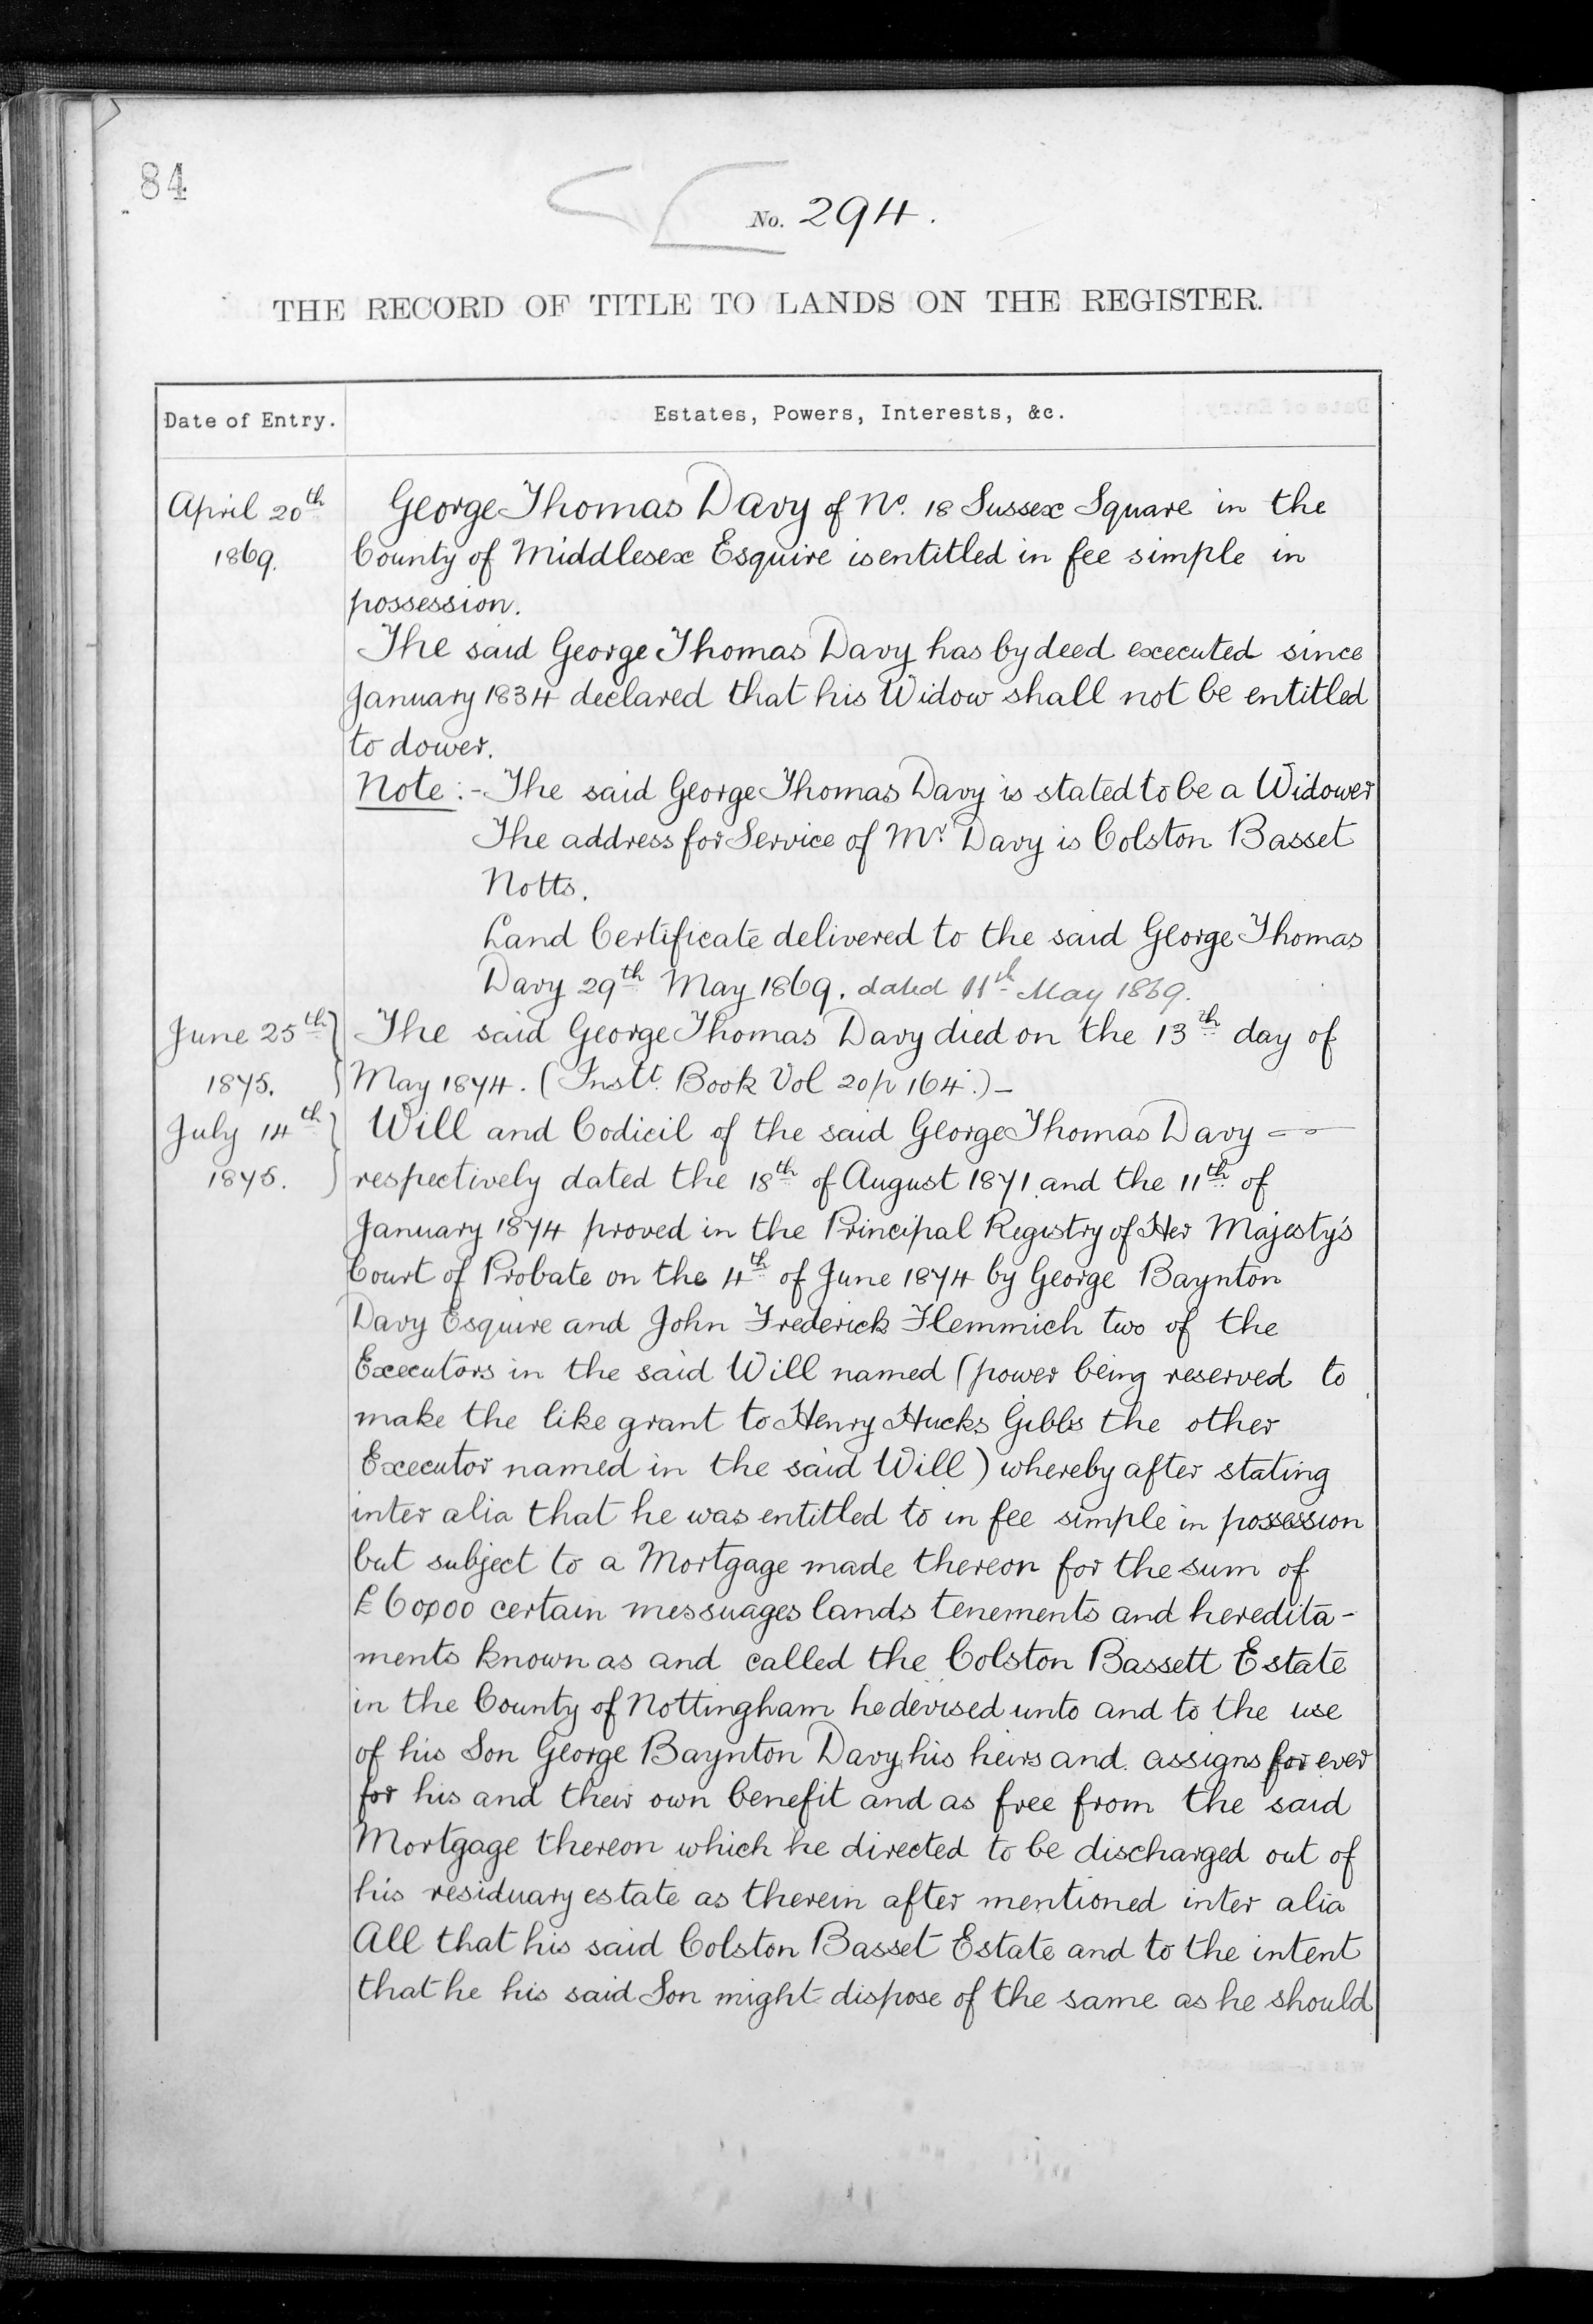 84
No. 294.
THE RECORD OF TITLE TO LANDS ON THE REGISTER.
Date of Entry.
Estates, Powers, Interests, &c.
April 20th
1869.
George Thomas Davy of No. 18 Sussex Square in the
County of Middlesex Esquire is entitled in fee simple in
possession.
The said George Thomas Davy has by deed executed since
January 1834 declared that his Widow shall not be entitled
to dower.
Note:- The said George Thomas Davy is stated to be a Widower
The address for Service of Mr. Davy is Colston Basset
Notts.
Land Certificate delivered to the said George Thomas
Davy 29th May 1869. dated 11th May 1869.
June 25th
1875.
The said George Thomas Davy died on the 13th day of
May 1874. (Instt. Book Vol 20 p 164.)-
July 14th
1875.
Will and Codicil of the said George Thomas Davy
respectively dated the 18th of August 1871 and the 11th of
January 1874 proved in the Principal Registry of Her Majesty's
Court of Probate on the 4th of June 1874 by George Baynton
Davy Esquire and John Frederick Flemmich two of the
Executors in the said Will named (power being reserved to
make the like grant to Henry Hucks Gibbs the other
Executor named in the said Will) whereby after stating
inter alia that he was entitled to in fee simple in possession
but subject to a Mortgage made thereon for the sum of
£60,000 certain messuages lands tenements and heredita-
ments known as and called the Colston Bassett Estate
in the County of Nottingham he devised unto and to the use
of his Son George Baynton Davy his heirs and assigns for ever
for his and their own benefit and as free from the said
Mortgage thereon which he directed to be discharged out of
his residuary estate as therein after mentioned inter alia
All that his said Colston Basset Estate and to the intent
that he his said Son might dispose of the same as he should